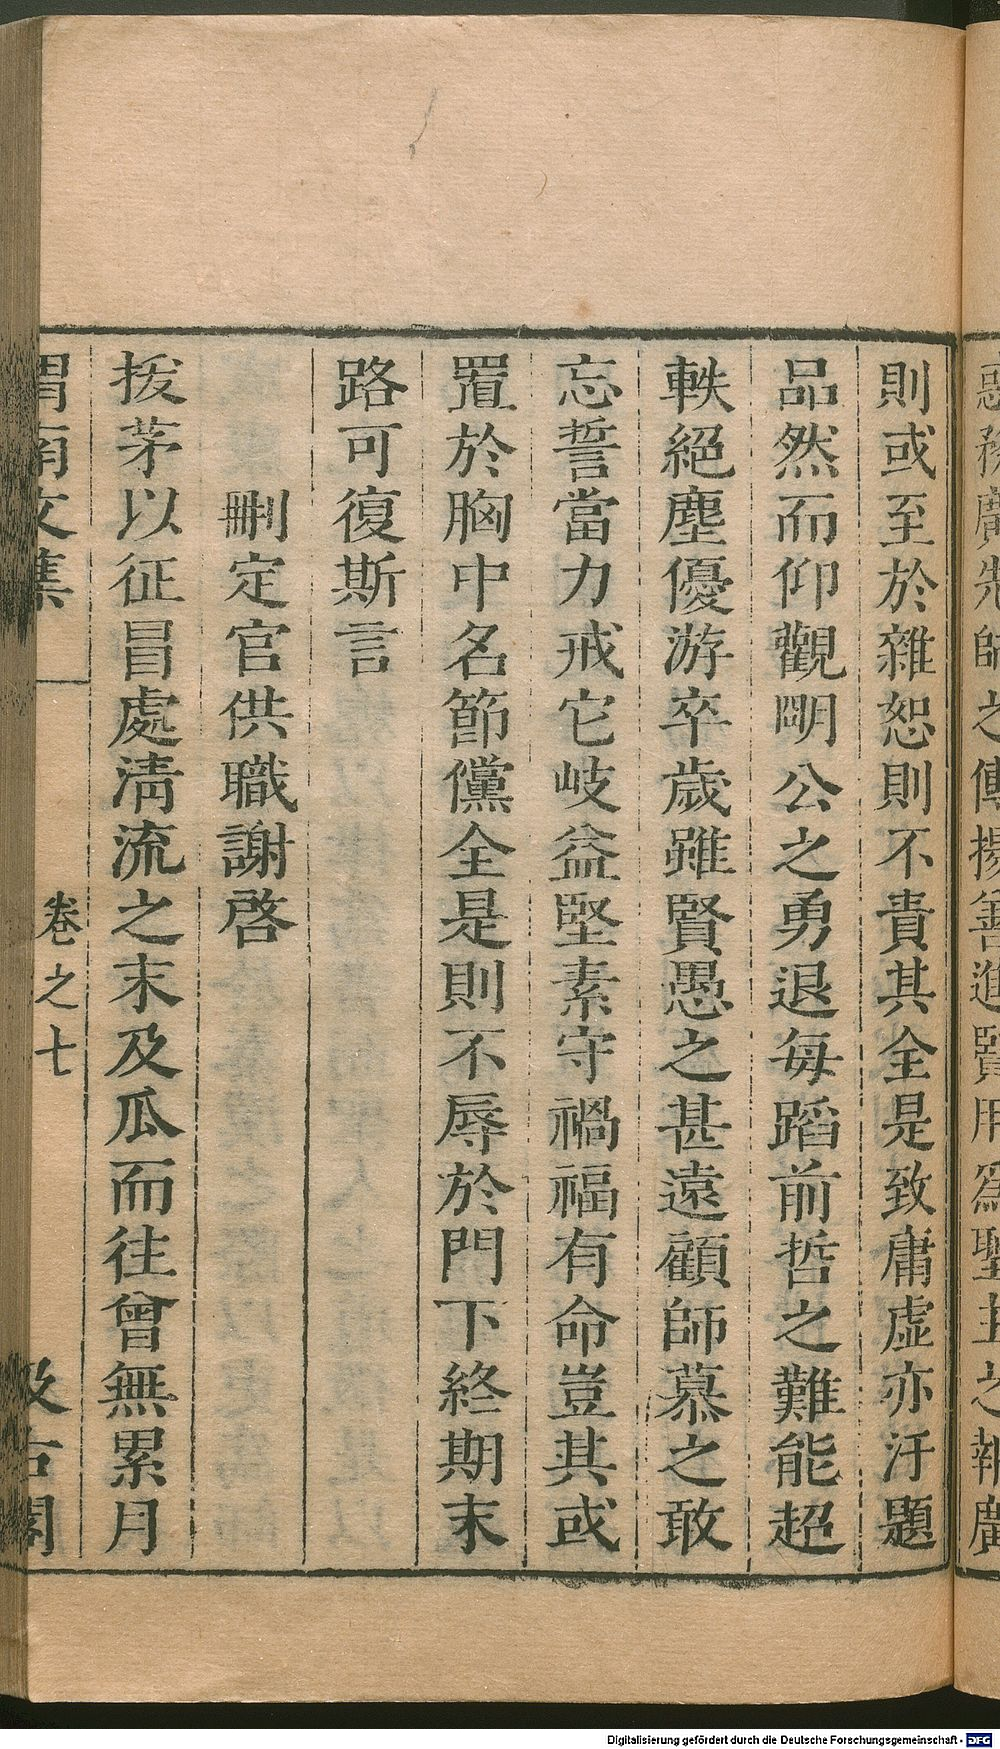 則或至於雜恕則不責其全是致庸虛亦汙題
品然而仰觀明公之勇退每蹈前哲之難能超
軼絕塵優游卒歲雖賢愚之甚遠顧師慕之敢
忘誓當力戒它岐益堅素守禍福有命豈其或
置於胸中名節儻全是則不辱於門下終期末
路可復斯言
刪定官供職謝啓
拔茅以征冒處淸流之末及瓜而往曾無累月
渭南文集 卷之七 汲古閣
Digitalisierung gefördert durch die Deutsche Forschungsgemeinschaft - DFG